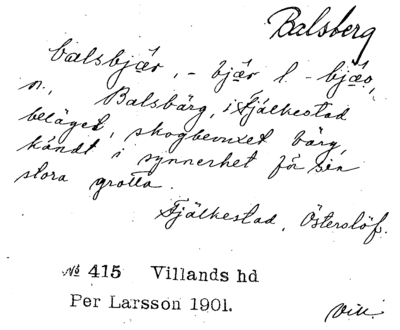 Balsberg
balsbjær, - bjær l. - bjæo,
n., Balsbärg, i Fjälkestad
beläget, skogbevuxet bärg,
kändt i synnerhet för sin
stora grotta.
Fjälkestad, Österslöf.
№ 415 Villands hd
Per Larsson 1901.
Vill.